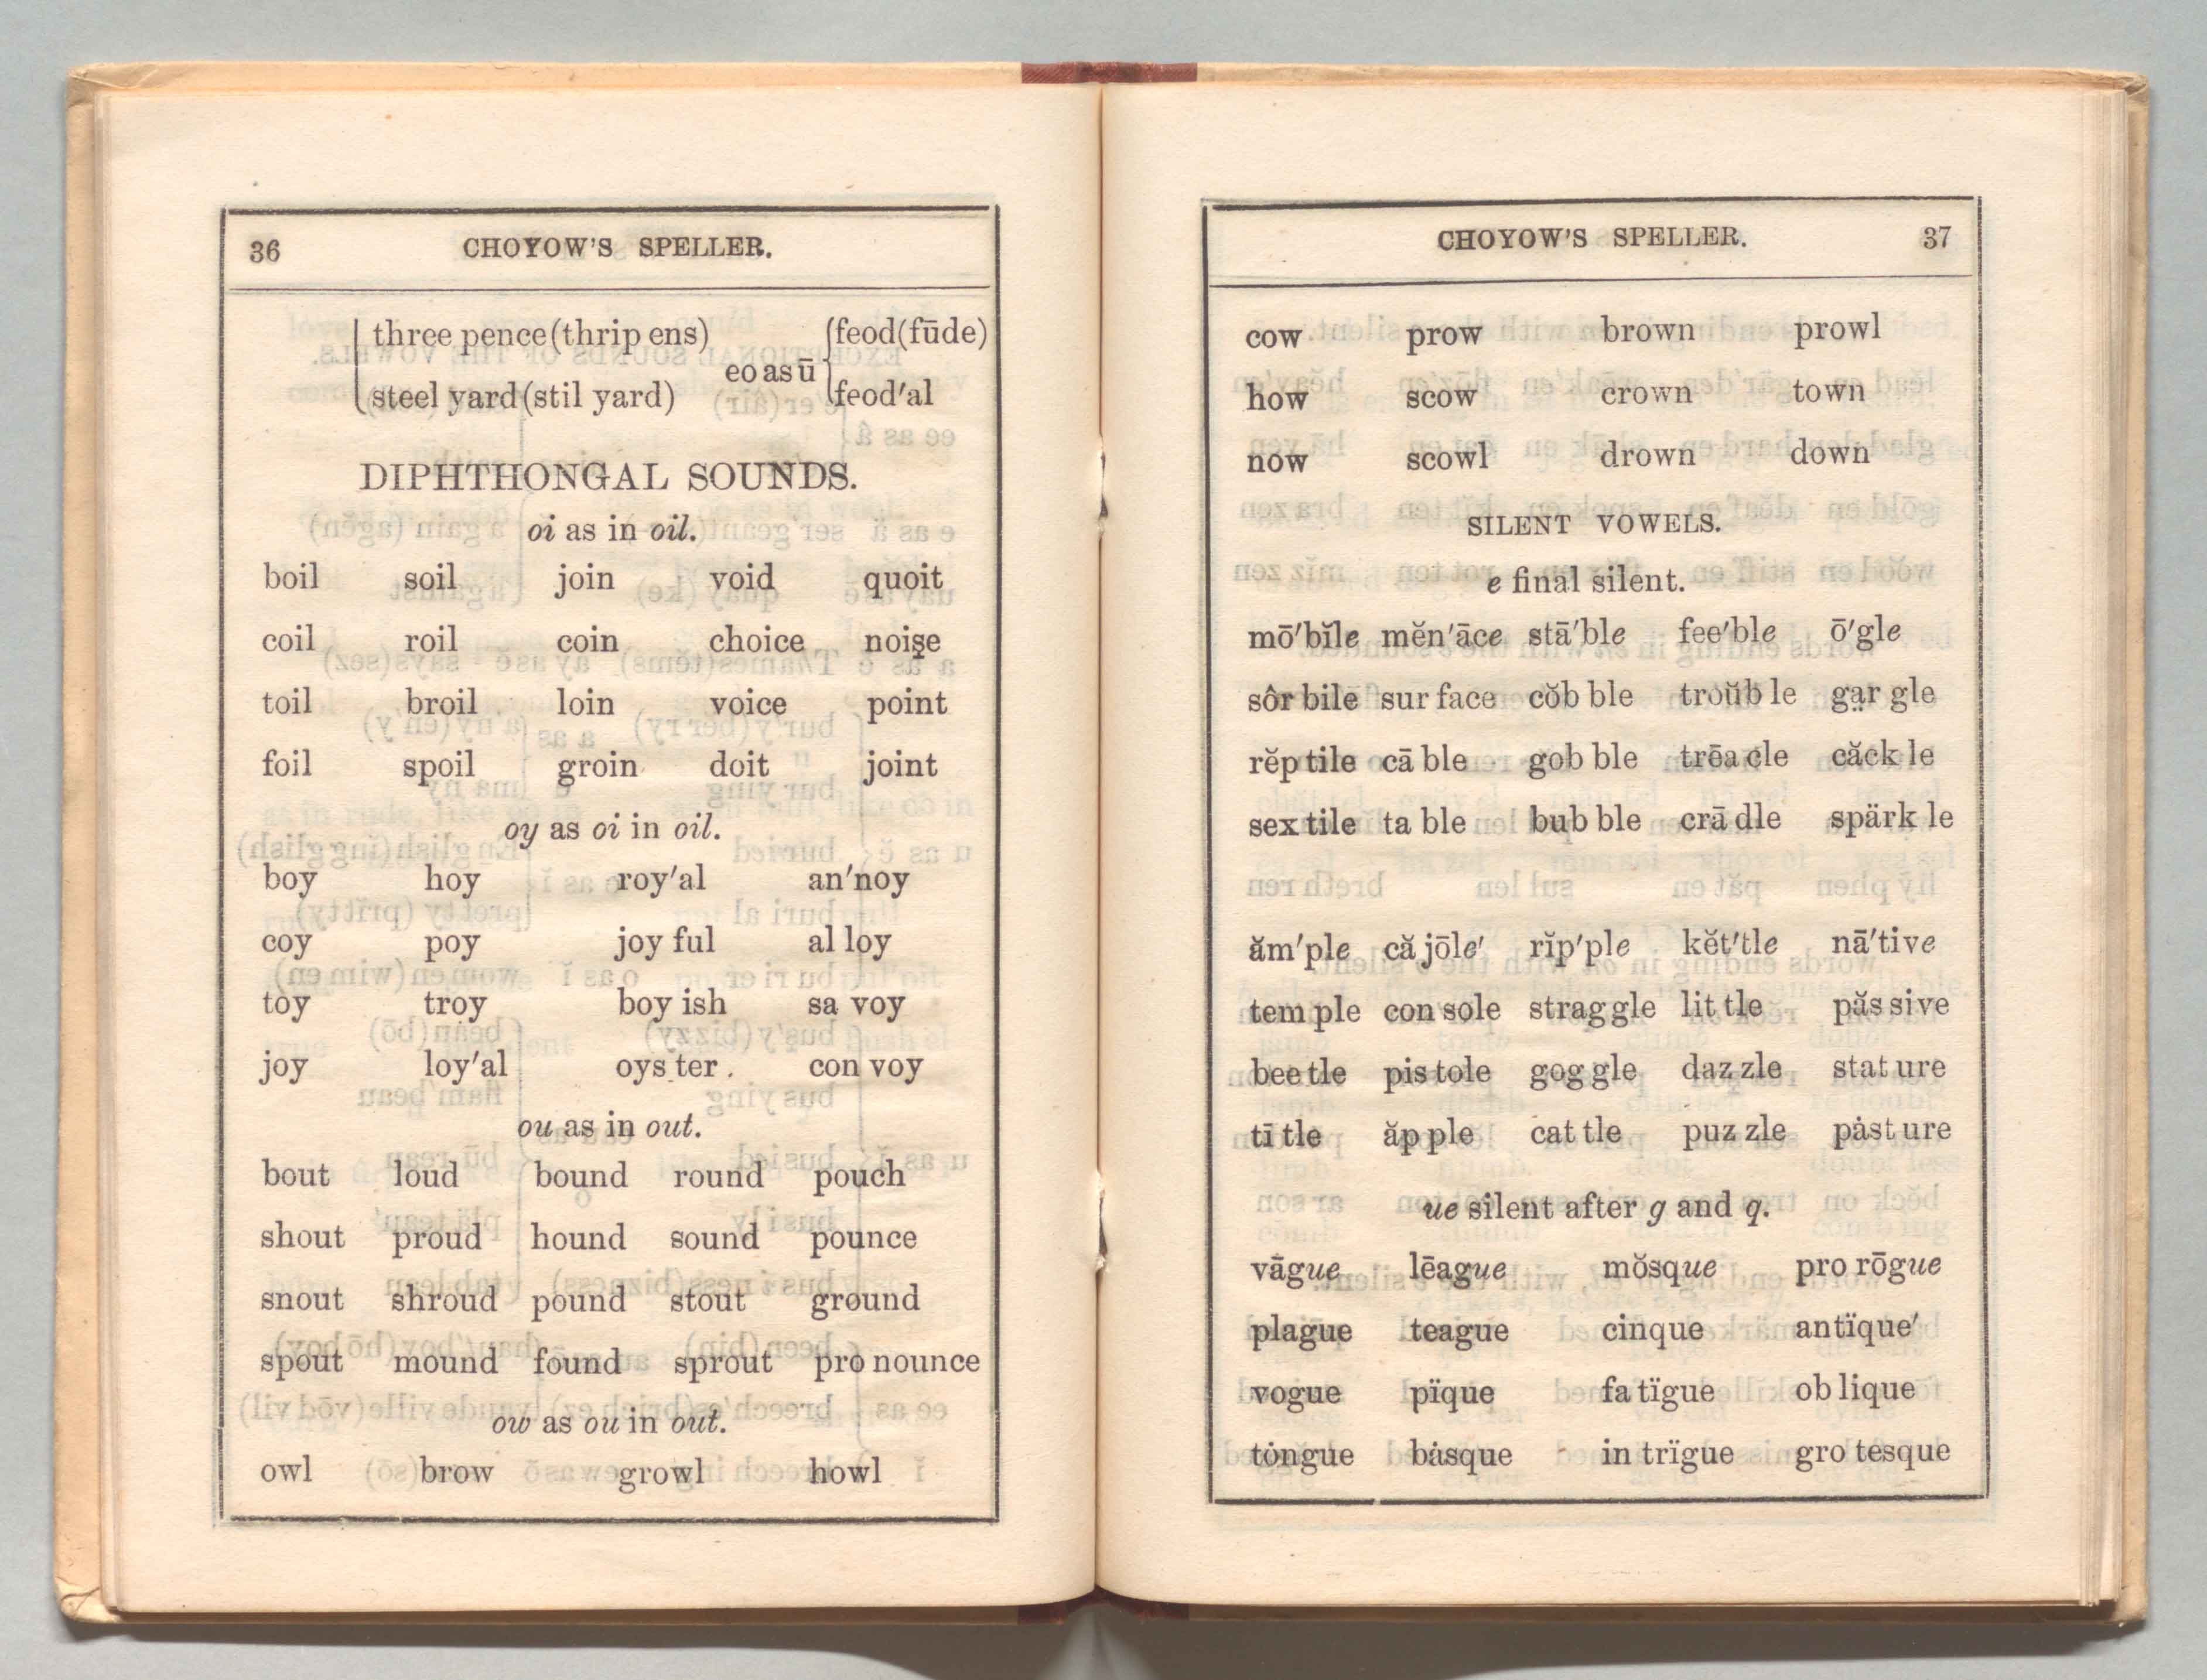 36 CHOYOW'S SPELLER.
three pence(thrip ens) feod(fūde)
eo as ū
steel yard(stil yard) feod'al
DIPHTHONGAL SOUNDS.
oi as in oil.
boil soil join void quoit
coil roil coin choice noişe
toil broil loin voice point
foil spoil groin doit joint
oy as oi in oil.
boy hoy roy'al an'noy
coy poy joy ful al loy
toy troy boy ish sa voy
joy loy'al oys ter con voy
ou as in out.
bout loud bound round pouch
shout proud hound sound pounce
snout shroud pound stout ground
spout mound found sprout pro nounce
ow as ou in out.
owl brow growl howl
CHOYOW'S SPELLER. 37
cow prow brown prowl
how scow crown town
now scowl drown down
SILENT VOWELS.
e final silent.
mō'bĭle mĕn'āce stā'ble fee'ble ō'gle
sôr bile sur face cŏb ble troŭb le ga̤r gle
rĕp tile cā ble gob ble trēa cle căck le
sex tile ta ble bub ble crā dle spärk le
ăm'ple că jōle' rĭp'ple kĕt'tle nā'tive
tem ple con sole strag gle lit tle păs sive
bee tle pis tole gog gle daz zle stat ure
tī tle ăp ple cat tle puz zle pȧst ure
ue silent after g and q.
vāgue lēague mŏsque pro rōgue
plague teague cinque antïque'
vogue pïque fa tïgue ob lique
tȯngue bȧsque in trïgue gro tesque